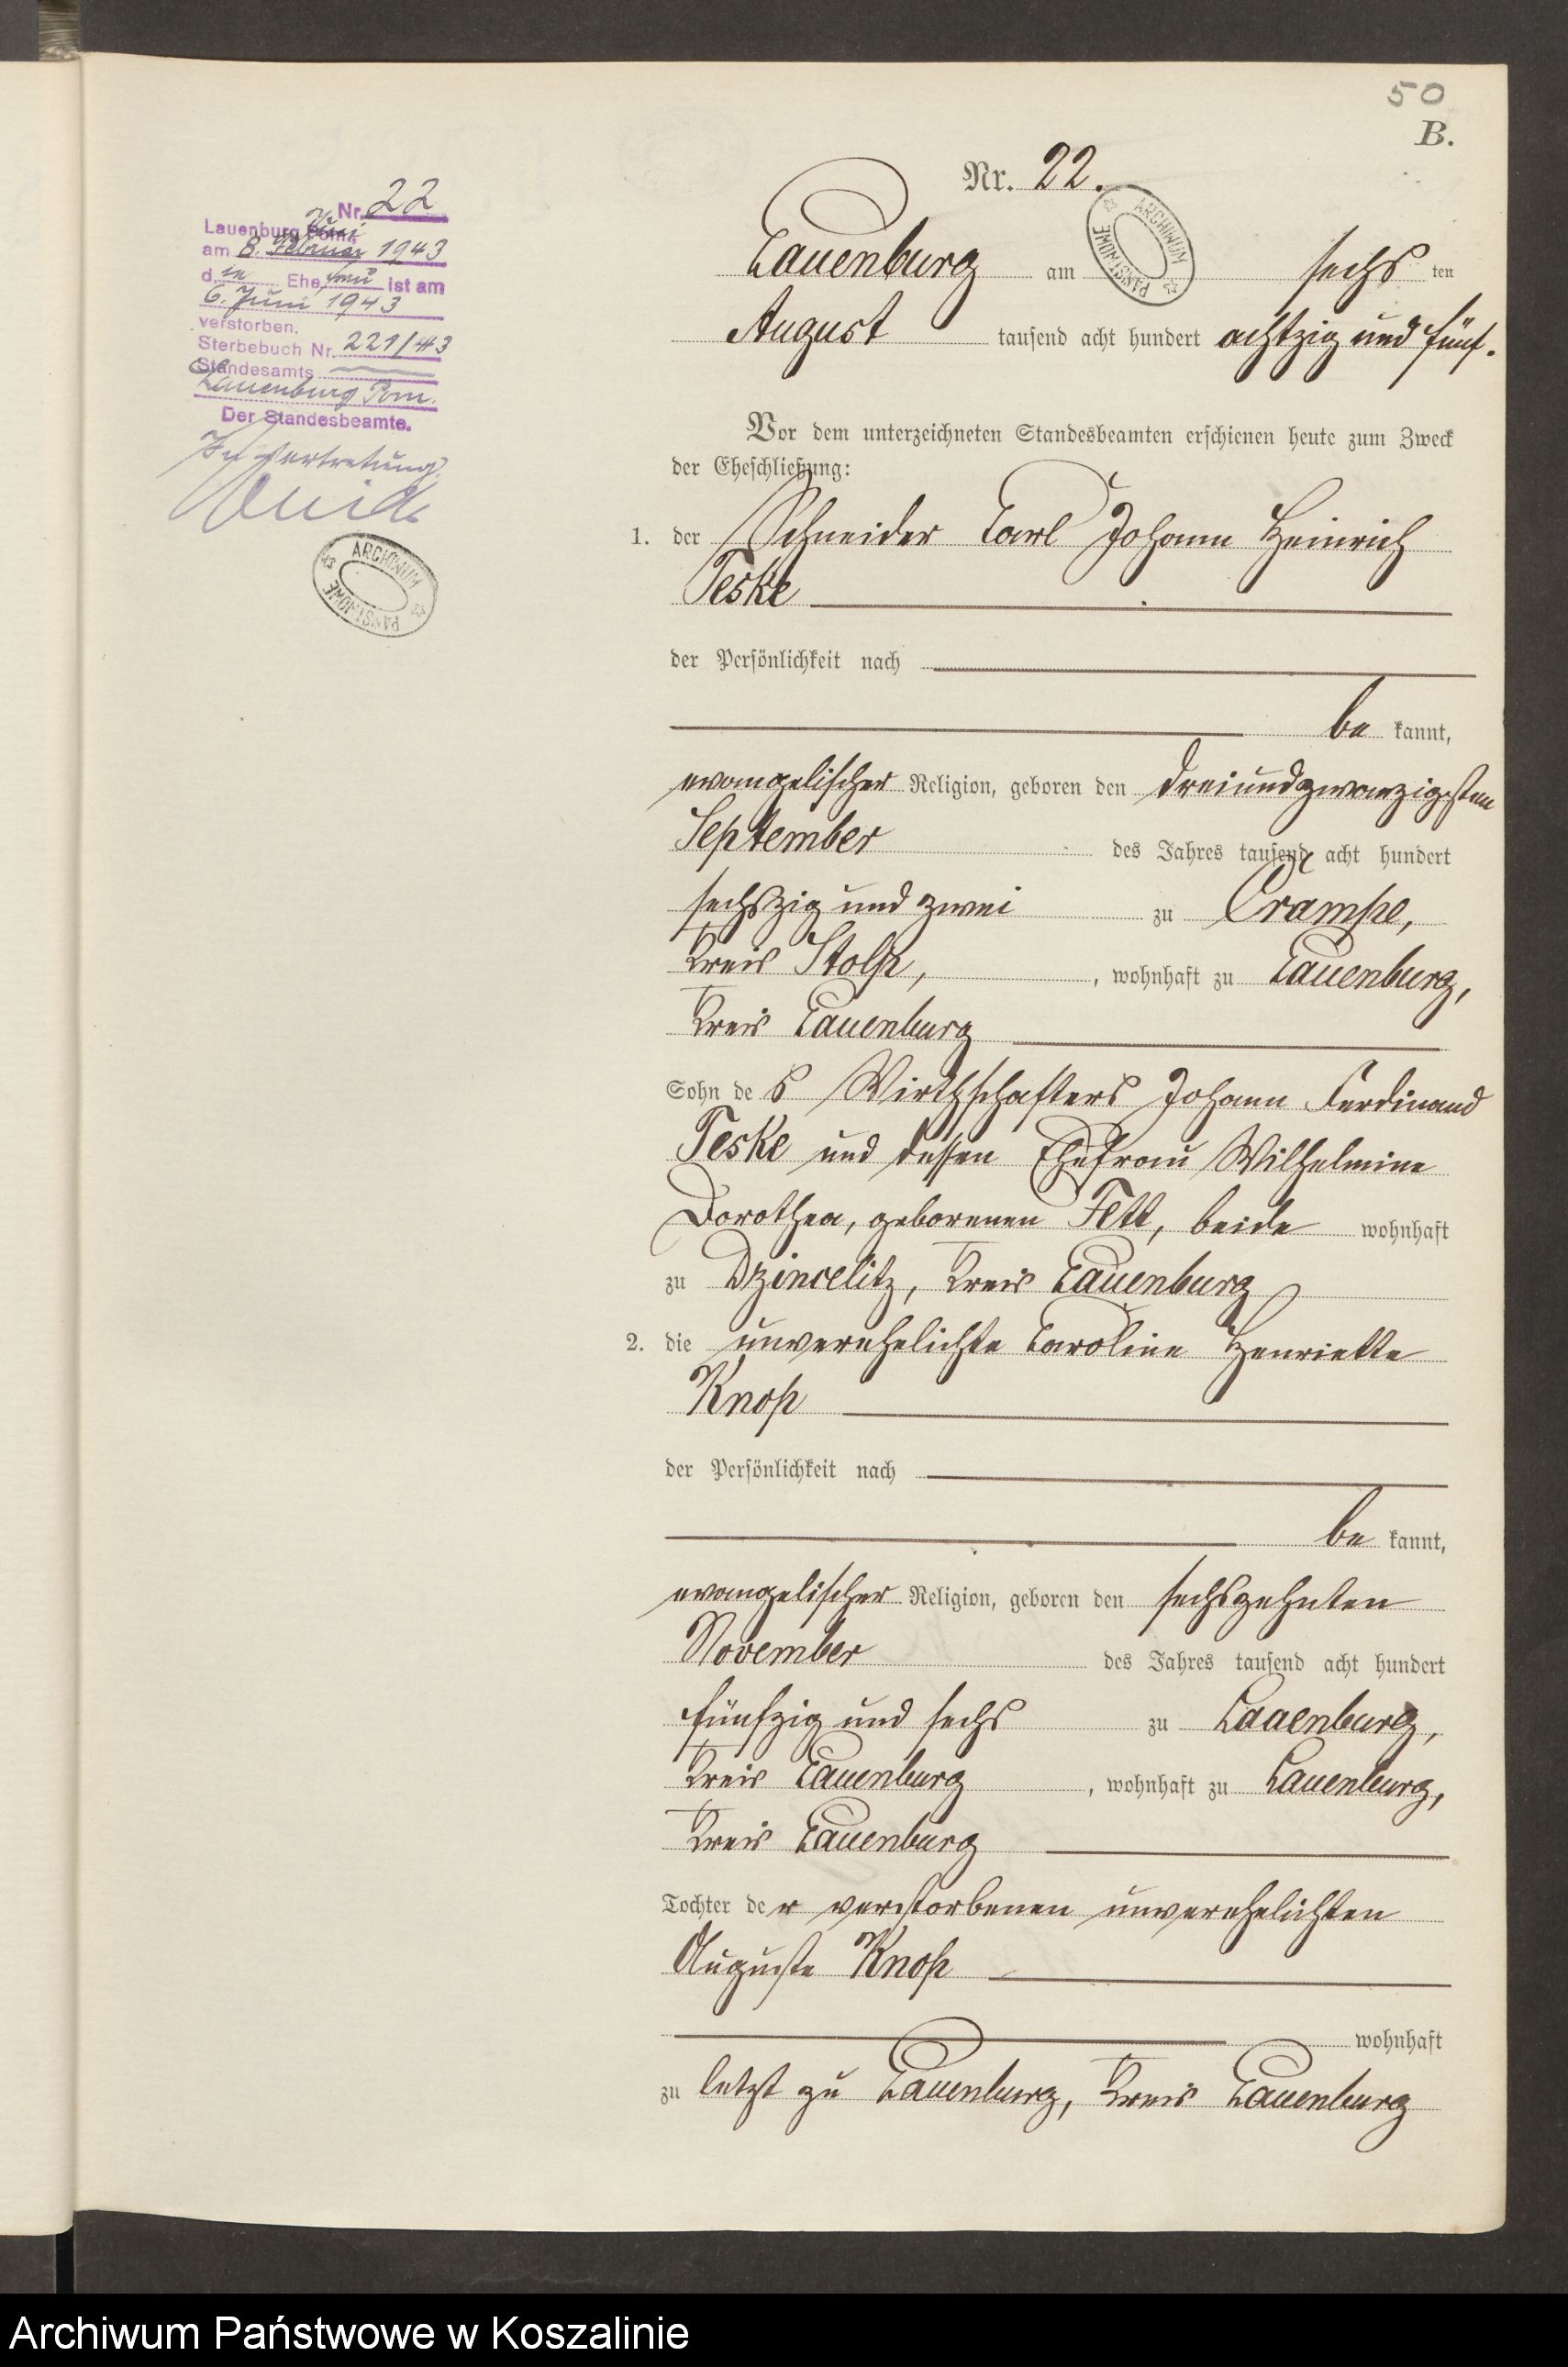 50
B.
Nr. 22.
Lauenburg am sechs ten
August tausend acht hundert achtzig und fünf.
Vor dem unterzeichneten Standesbeamten erschienen heute zum Zweck
der Eheschließung:
1. der Schneider Carl Johann Heinrich
Teske
der Persönlichkeit nach
be kannt,
evangelischer Religion, geboren den dreiundzwanzigsten
September des Jahres tausend acht hundert
sechszig und zwei zu Crampe,
Kreis Stolp, , wohnhaft zu Lauenburg,
Kreis Lauenburg
Sohn de s Wirthschafters Johann Ferdinand
Teske und dessen Ehefrau Wilhelmine
Dorothea, geborenen Fett, beide wohnhaft
zu Dzincelitz, Kreis Lauenburg
2. die unverehelichte Caroline Henriette
Knop
der Persönlichkeit nach
be kannt,
evangelischer Religion, geboren den sechszehnten
November des Jahres tausend acht hundert
fünfzig und sechs zu Lauenburg,
Kreis Lauenburg , wohnhaft zu Lauenburg,
Kreis Lauenburg
Tochter de r verstorbenen unverehelichten
Auguste Knop
wohnhaft
zu letzt zu Lauenburg, Kreis Lauenburg
Nr. 22
Lauenburg Pom. Juni
am 8. Februar 1943
d ie Ehe frau ist am
6. Juni 1943
verstorben.
Sterbebuch Nr. 221/43
Standesamts
Lauenburg Pom.
Der Standesbeamte.
In Vertretung
ARCHIWUM PAŃSTWOWE
ARCHIWUM PAŃSTWOWE
Archiwum Państwowe w Koszalinie